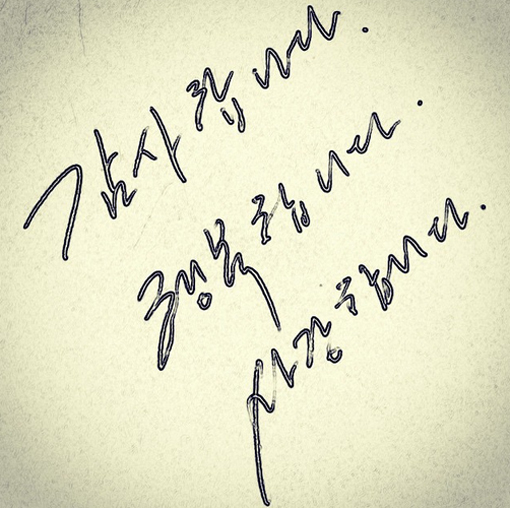 감사합니다.
행복합니다.
사랑합니다.